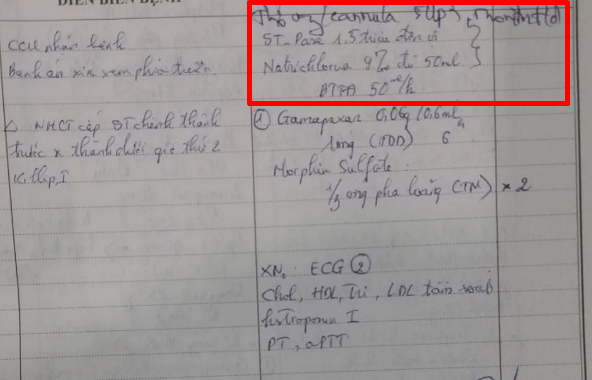 DIỄN BIẾN BỆNH
CCU nhận bệnh
Bệnh án xin xem phía trước
△ NMCT cấp ST chênh thành
trước thành giờ thứ 2
Killip I
Thở oxy/cannula 5l/p,
ST-Pase 1.5 triệu đơn vị
Natrichlorua 9‰ đủ 50ml
BTTĐ 50ml/h
① Gamapaxan 0,06g/0,6ml
(TDD) 6
Morphin Sulfate
1/3 ống pha loãng (TM) x 2
XN: ECG ②
Chol, HDL, Tri, LDL
hstroponin I
PT, aPTT